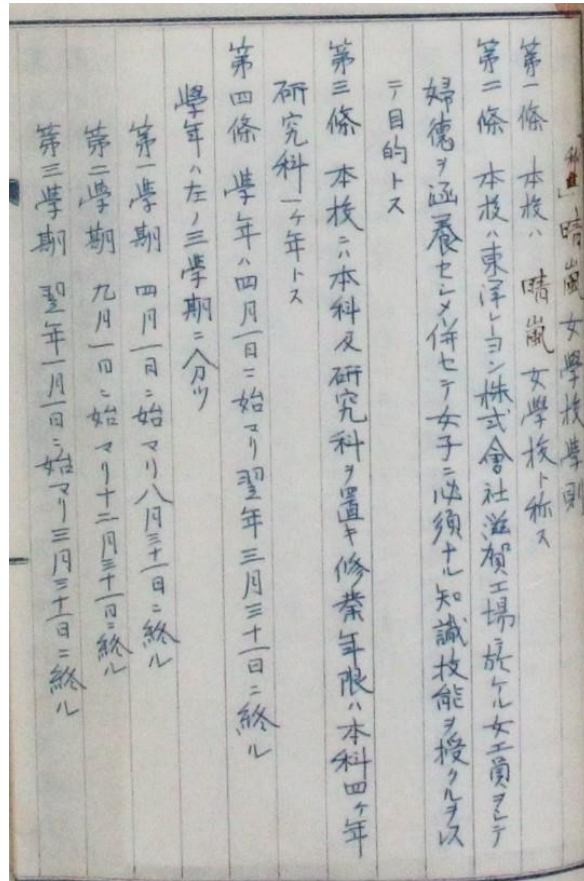 私立晴嵐女學校學則
第一條　本校ハ　晴嵐女學校ト称ス
第二條　本校ハ東洋レーヨン株式會社滋賀工場ニ於ケル女工員ヲシテ
婦德ヲ涵養セシメ併セテ女子ニ必須ナル知識技能ヲ授クルヲ以
テ目的トス
第三條　本校ニハ本科及研究科ヲ置キ修業年限ハ本科四ヶ年
研究科一ヶ年トス
第四條　學年ハ四月一日ニ始マリ翌年三月三十一日ニ終ル
學年ハ左ノ三學期ニ分ツ
第一學期　四月一日ニ始マリ八月三十一日ニ終ル
第二學期　九月一日ニ始マリ十二月三十一日ニ終ル
第三學期　翌年一月一日ニ始マリ三月三十一日ニ終ル